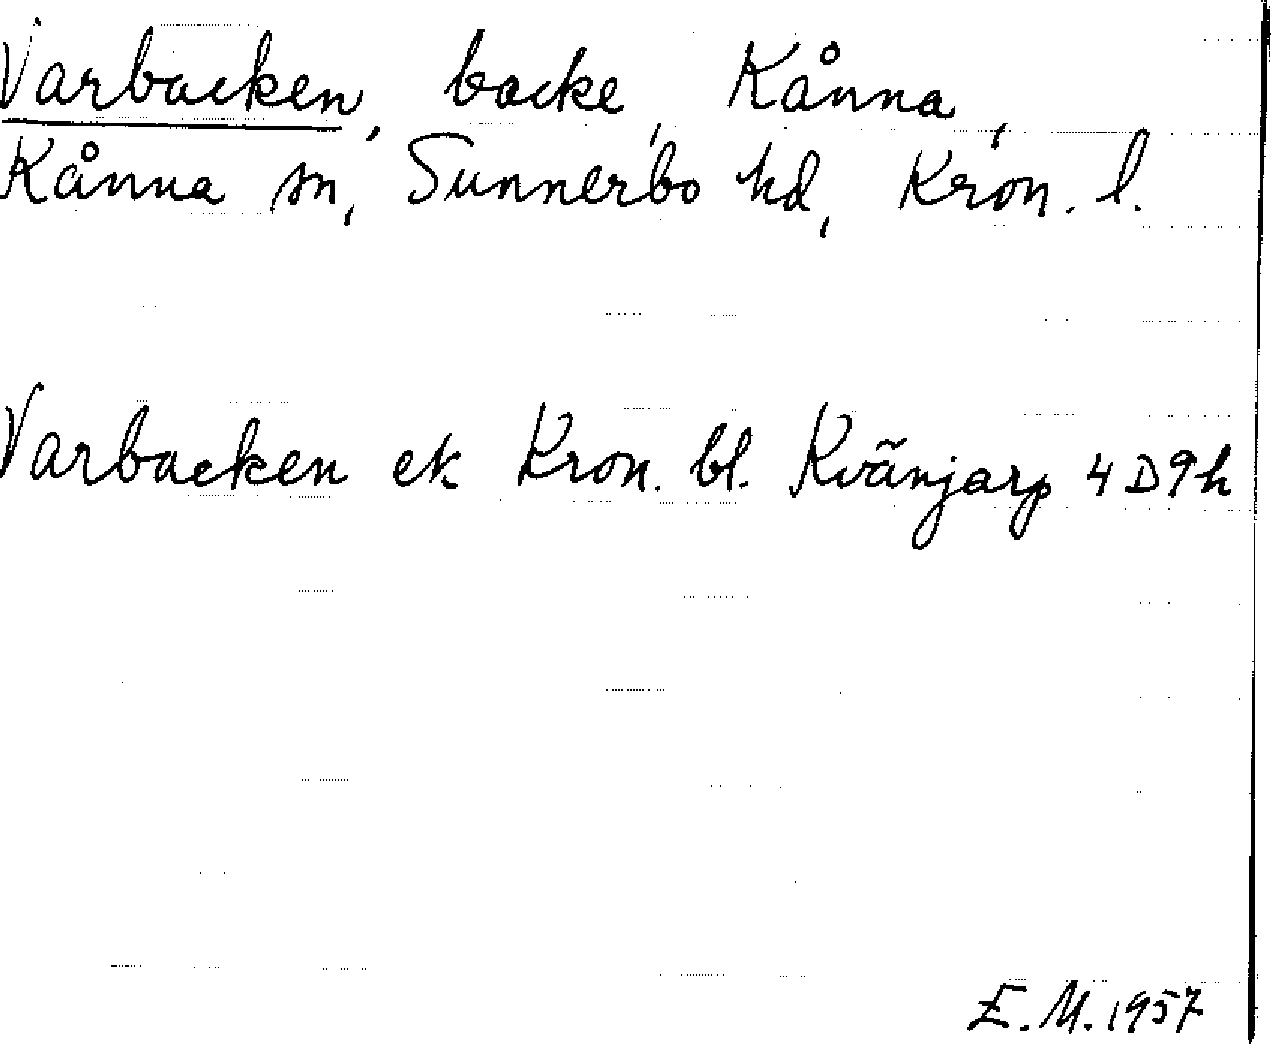 Varbacken, backe, Kånna,
Kånna sn, Sunnerbo hd, Kron. l.
Varbacken ek Kron. bl. Kvänjarp 4D9h
E.M. 1957